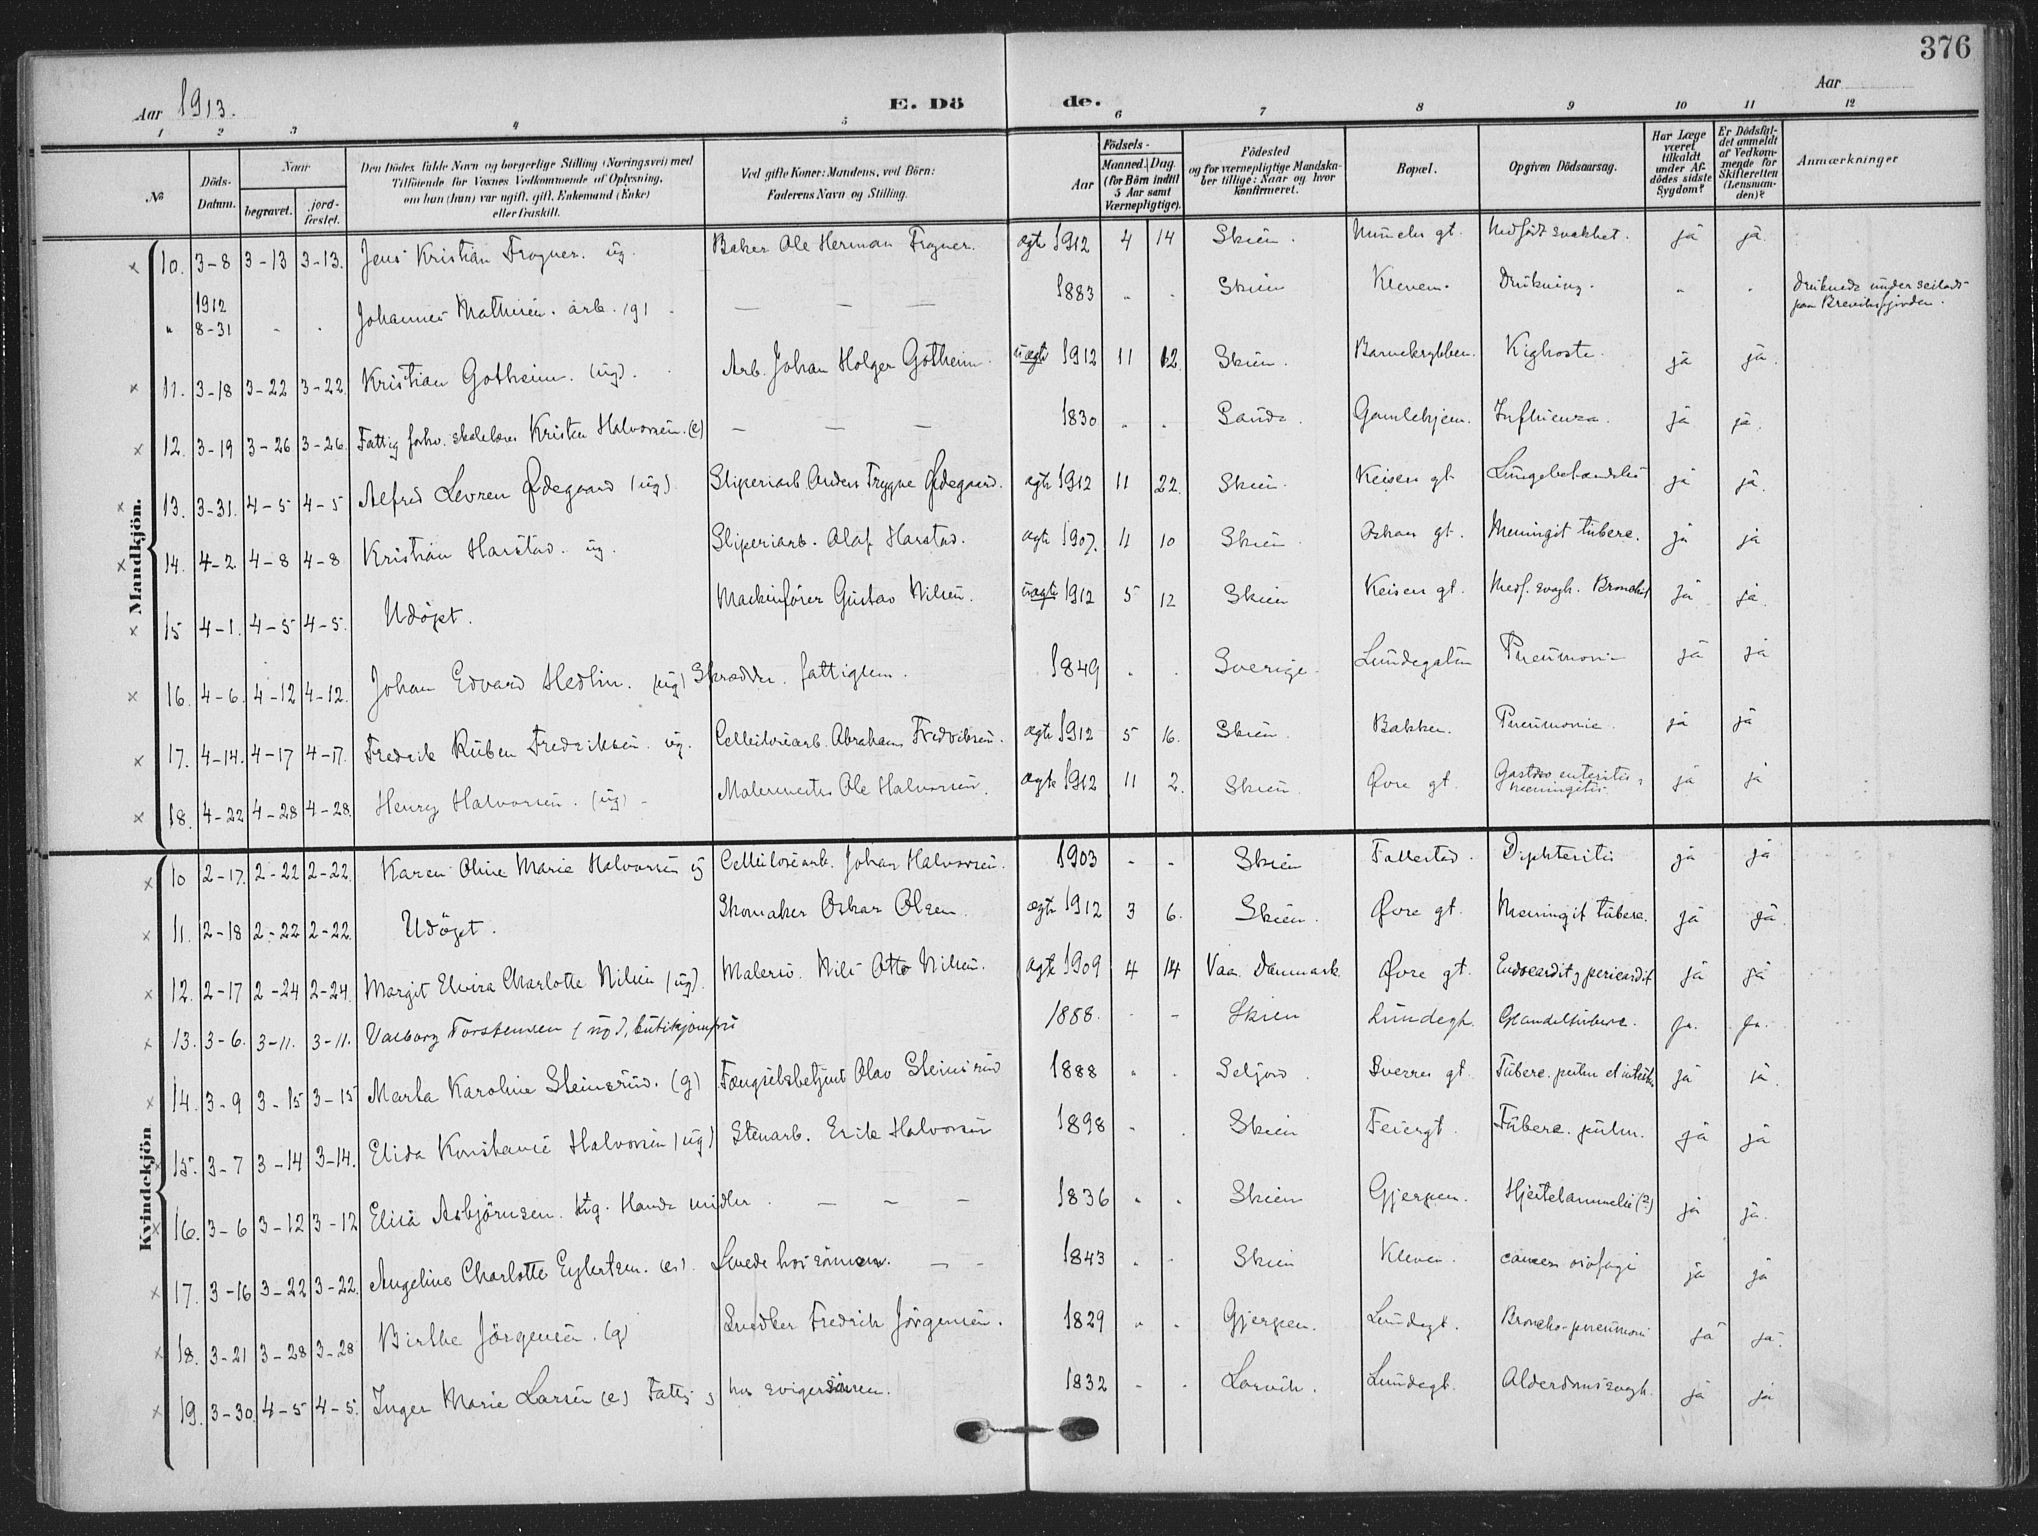 376
Aar 1913.
E. Dö de.
Aar
1 2 3 4 5 6 7 8 9 10 11 12
№
Döds-Datum.
Naar
begravet.
jord-festet.
Den Dödes fulde Navn og borgerlige Stilling (Næringsvei) med Tilföiende for Voxnes Vedkommende af Oplysning, om han (hun) var ugift, gift, Enkemand (Enke) eller fraskilt.
Ved gifte Koner: Mandens, ved Börn: Faderens Navn og Stilling.
Födsels-
Aar
Maaned. Dag. (for Börn indtil 5 Aar samt Værnepligtige).
Födested og for værnepligtige Mandskaber tillige: Naar og hvor Konfirmeret.
Bopæl.
Opgiven Dödsaarsag.
Har Læge været tilkaldt under Afdödes sidste Sygdom?
Er Dödsfaldet anmeldt af Vedkommende for Skifteretten (Lensmanden)?
Anmærkninger
Mandkjön.
10. 3-8 3-13 3-13. Jens Kristian Frogner. ug. Baker Ole Herman Frogner. ægte 1912 4 14 Skien. gt. Medfödt svakhet. ja ja
" 1912 8-31 - . Johannes Mathisen. arb. (g) — — — 1883 " . Skien Kleven. Drukning. " " Druknede under seilads paa Brevikfjorden.
11. 3-18 3-22 3-22 Kristian Gotheim. (ug). Arb. Johan Holger Gotheim. uægte 1912 11 12. Skien. Barnekrybben. Kighoste. ja ja.
12. 3-19 3-26 3-26. Fattig forhv. skolelærer Kristen Halvorsen. (e) — — — 1830 . . Sande. Gamlehjem. Influenza. ja ja.
13. 3-31. 4-5 4-5 Alfred Levren Ødegaard (ug) Sliperiarb. Anders Trygve Ødegaard. ægte 1912 11 22. Skien. Keisers gt. Lungebetændelse ja ja.
14. 4-2 4-8 4-8 Kristian Harstad. ug. Sliperiarb. Olaf Harstad. ægte 1907. 11 10 Skien. Oskars gt. Meningit tuberc. ja ja
15 4-1. 4-5 4-5. Udöpt. Maskinförer Gustav Nilsen. uægte 1912 5 12 Skien Keisers gt. Medf. svagh. Bronchit ja ja.
16. 4-6. 4-12 4-12. Johan Edvard Hedlin. (ug) Skrædder. fattiglem. 1849 . . Sverige. Lundegaten Pneumoni ja ja
17. 4-14. 4-17 4-17. Fredrik Ruben Fredriksen. ug. Celluloiarb. Abraham Fredriksen. ægte 1912 5 16. Skien. Bakken. Pneumonie ja ja
18. 4-22 4-28 4-28. Henry Halvorsen. (ug) - Malermester Ole Halvorsen. ægte 1912 11 2. Skien. Øvre gt. Gastro enteritis, meningitis. ja ja
Kvindekjön
10 2-17. 2-22 2-22. Karen Oline Marie Halvorsen ug Celluloiarb. Johan Halvorsen. 1903 - - Skien Follestad. Diphteritis ja ja
11. 2-18 2-22 2-22. Udöpt. Skomaker Oskar Olsen. ægte 1912 3 6. Skien. Øvre gt. Meningit tuberc. ja ja
12. 2-17 2-24 2-24. Margit Elvira Charlotte Nilsen (ug). Nils Otto Nilsen. ægte 1909 4 14 Danmark Øvre gt. Endocardit og pericardit ja ja
13. 3-6. 3-11. 3-11. Valborg Torstensen (ug), butikjomfru 1888. - - Skien Lundegt. Glandeltuberc. Ja. Ja.
14. 3-9 3-15 3-15 Marta Karoline Steinsrud. (g) Fængselsbetjent Olav Steinsrud 1888 " . Seljord. Sverres gt. Tuberc. pulm et intestin ja ja.
15. 3-7 3-14 3-14. Elida Konstance Halvorsen (ug) Stenarb. Erik Halvorsen 1898 - . Skien Feiergt. Tuberc. pulm. ja ja
16. 3-6 3-12 3-12 Elise Asbjörnsen. ug. Havde midler. — — — 1836 " . Skien Gjerpen. Hjertelammelse (?) ja ja.
17. 3-16 3-22 3-22. Angeline Charlotte Eylertsen. (e). Levede hos sönnen. — - 1843 " . Skien Kleven. cancer ösofagi ja ja
18. 3-21 3-28 3-28 Birthe Jörgensen. (g) Snedker Fredrik Jörgensen. 1829 " . Gjerpen. Lundegt. Broncho-pneumoni ja ja.
19. 3-30. 4-5 4-5. Inger Marie Larsen (e) Fattig, hos svigersönnen. 1832 - . Larvik. Lundegt. Alderdomssvagh. ja ja